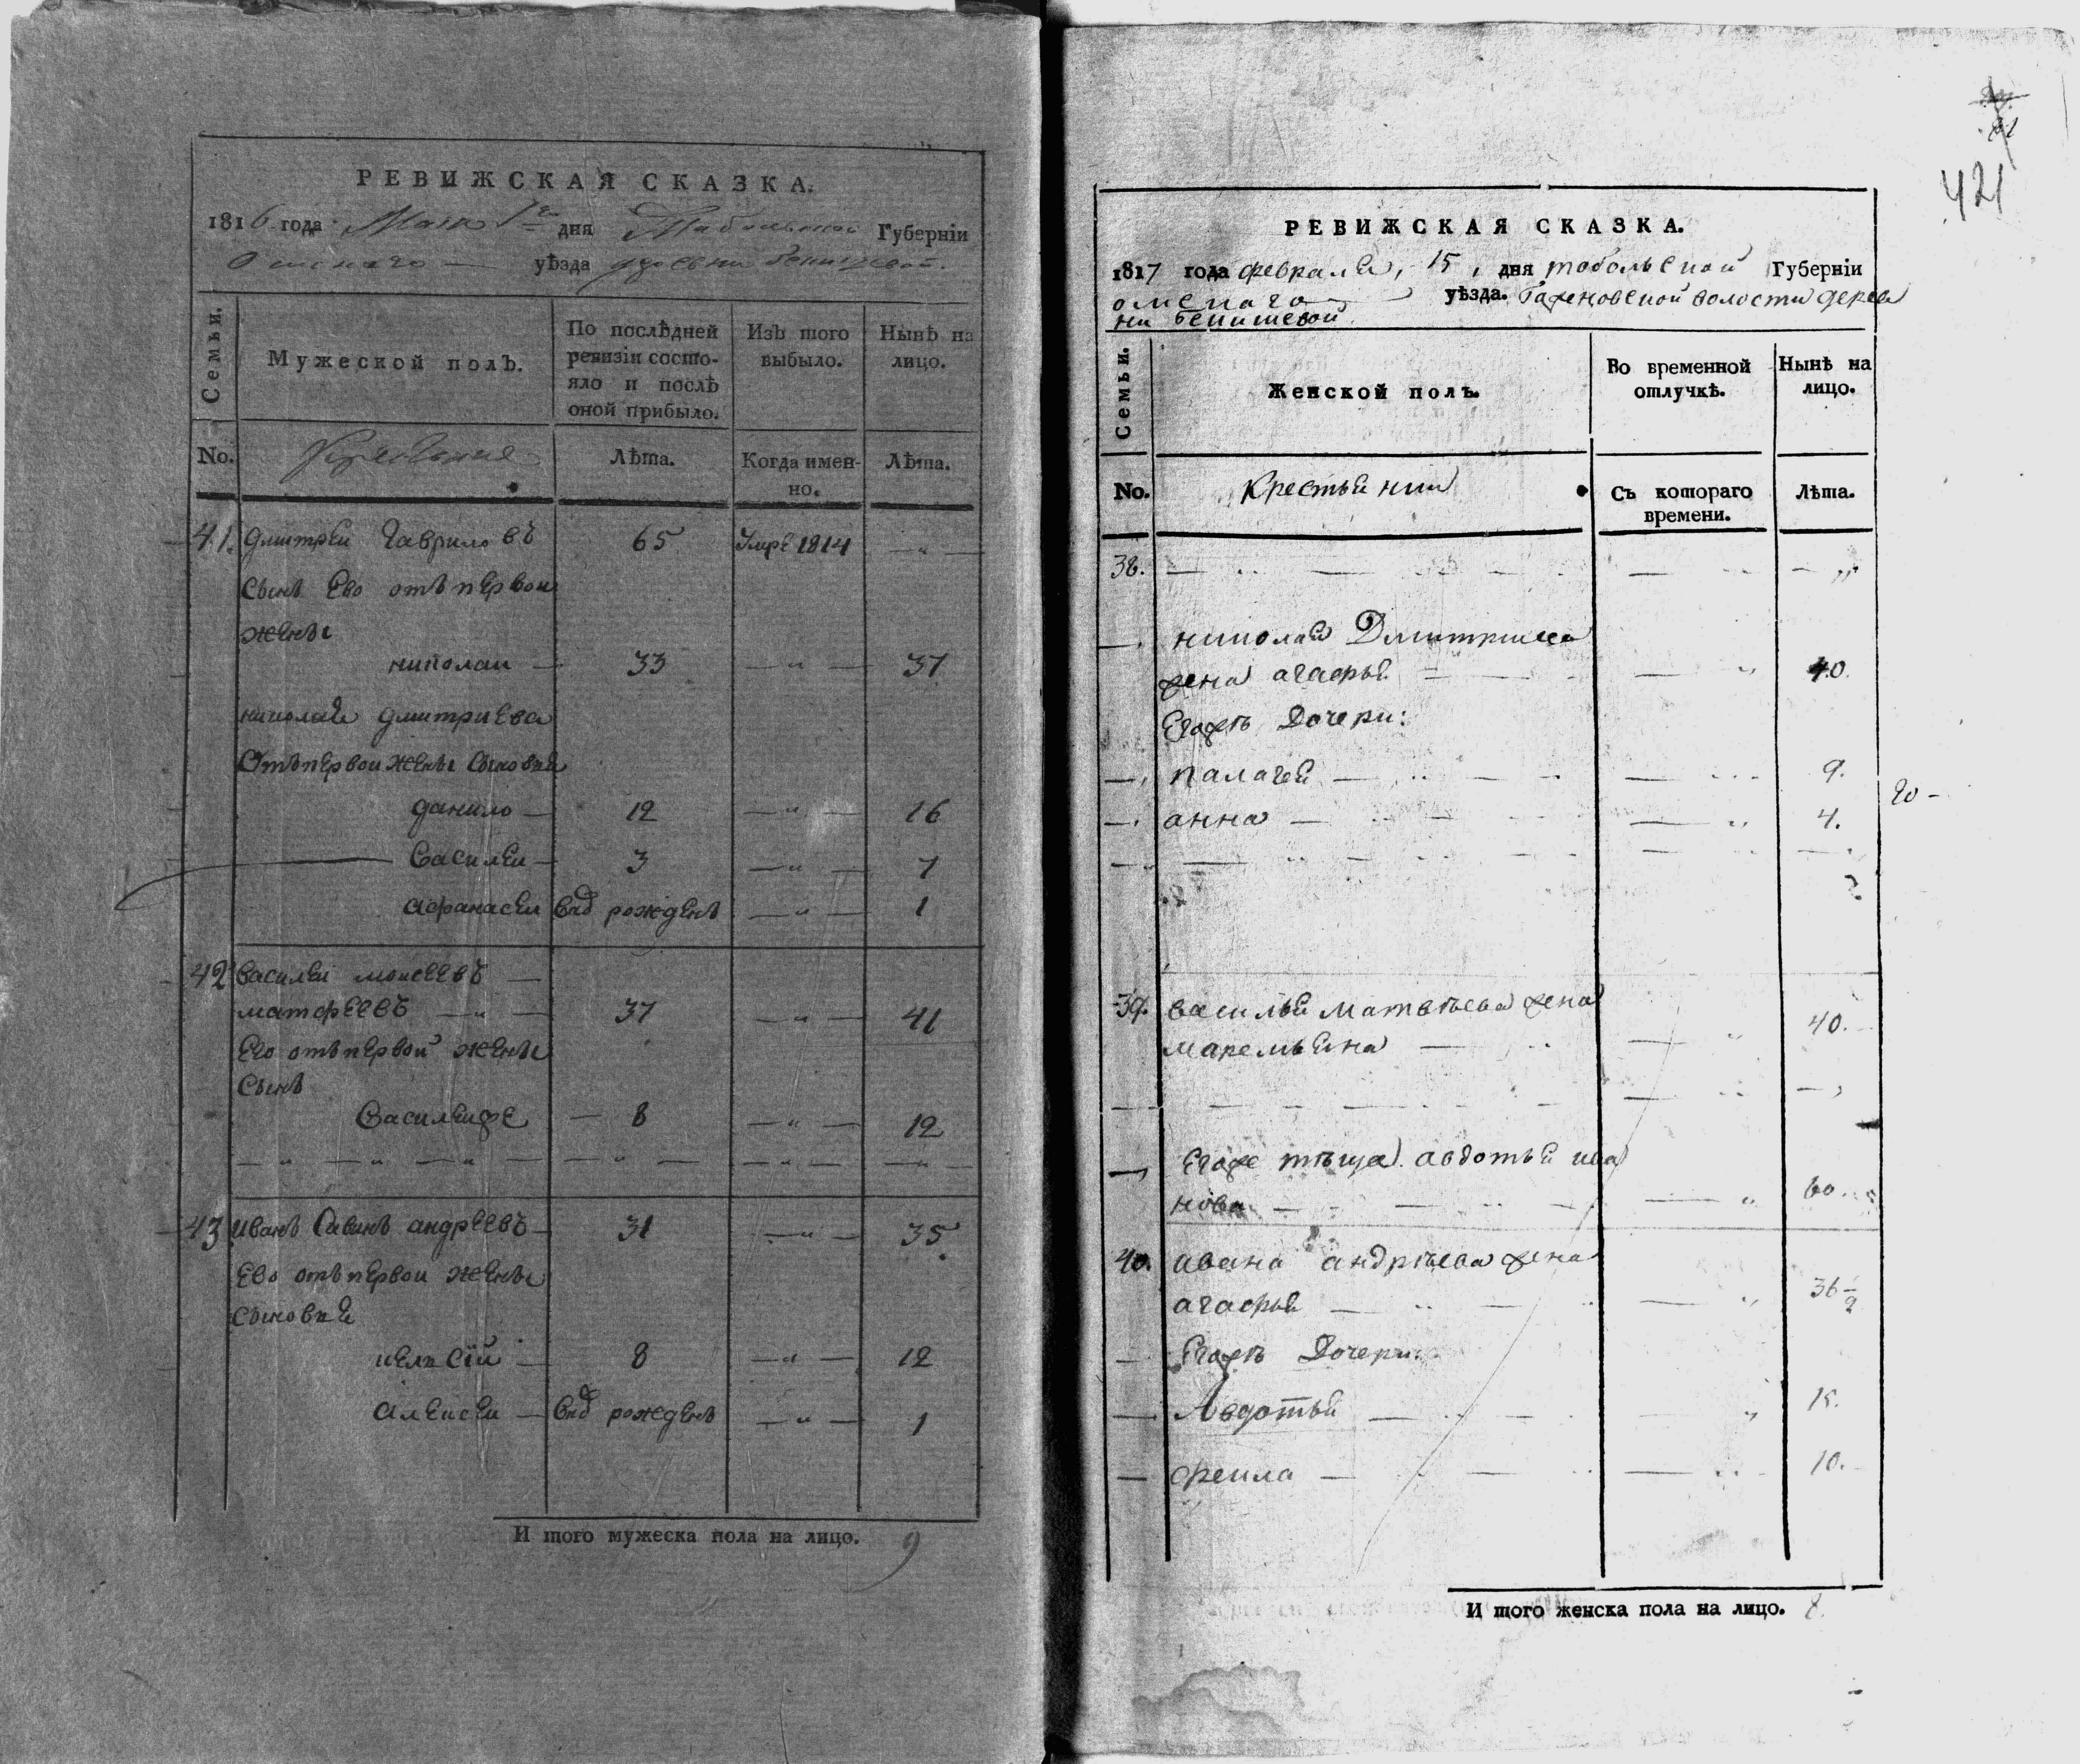 РЕВИЖСКАЯ СКАЗКА.
1816 года Маія 1го дня Тобольской Губерніи
Омскаго уѣзда деревни бекишевой.
Семьи.
Мужеской полъ.
По послѣдней ревизіи состо-
яло и послѣ
оной прибыло.
Изъ того выбыло.
Нынѣ на лицо.
No.
Крестьяне
Лѣта.
Когда имен-
но.
Лѣта.
41. дмитреи Гавриловъ 65 Умре 1814 — „ —
сынъ Ево отъ первои
жены
николаи — 33 — „ — 37
николая дмитриева
Отъ первои жены сыновья
данило — 12 — „ — 16
Василеи — 3 — „ — 7
афанасеи внов рожденъ — „ — 1
42 василеи моисеевъ —
матфеевъ — „ — 37 — „ — 41
Его отъ первой жены
сынъ
Василеиже — 8 — „ — 12
— „ — „ — „ — „ — „ — „ —
43 иванъ Савинъ андреевъ — 31 — „ — 35
Ево отъ первои жены
сыновья
8 — „ — 12
алексеи — внов рожденъ — „ — 1
И того мужеска пола на лицо. 9
421
РЕВИЖСКАЯ СКАЗКА.
1817 года февраля, 15, дня тобольской Губерніи
омскаго уѣзда. волости дерев
ни бекишевой
Семьи.
Женской полъ.
Во временной
отлучкѣ.
Нынѣ на
лицо.
No.
Крестьянки
Съ котораго
времени.
Лѣта.
38.
николая Дмитриева
жена агафья 40.
Егожъ Дочери:
палагея 9.
анна 4.
39. василья матвѣева жена
маремьяна 40.
Егоже тѣща. авдотья ива
нова 60.
40. ивана андрѣева жена
агафья 36
Егожъ Дочери:
Авдотья 15.
фекла 10.
И того женска пола на лицо. 8.